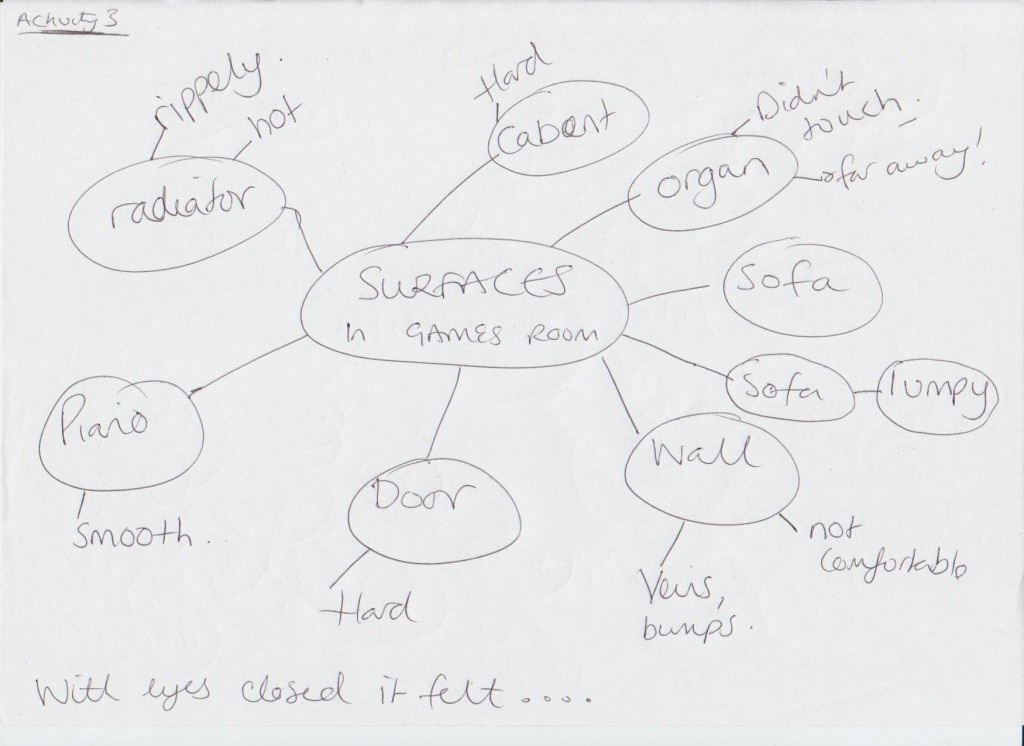 Activity 3
rippely.
hot
radiator
Hard
Cabent
Didn't
touch.
organ
far away!
SURFACES
In GAMES ROOM
Sofa
Sofa
lumpy
Piano
smooth.
Door
Hard
Wall
not
comfortable
Veins,
bumps.
With eyes closed it felt ....